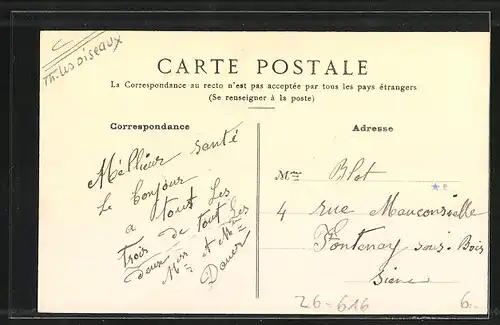 Th. les oiseaux
CARTE POSTALE
La Correspondance au recto n'est pas acceptée par tous les pays étrangers
(Se renseigner à la poste)
Correspondance
Adresse
Méllieur santé
Le bonjour
a tout Les
Trois de tout Les
deux Mr et Mme
Mme Blot
4 rue Mauconseille
Fontenay sous-Bois
Siene
26-616
6.-